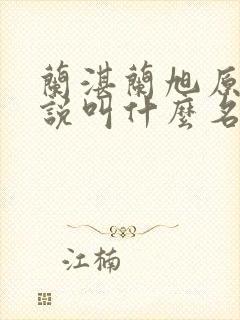 蘭湛蘭旭原
說叫什麼名
江楠